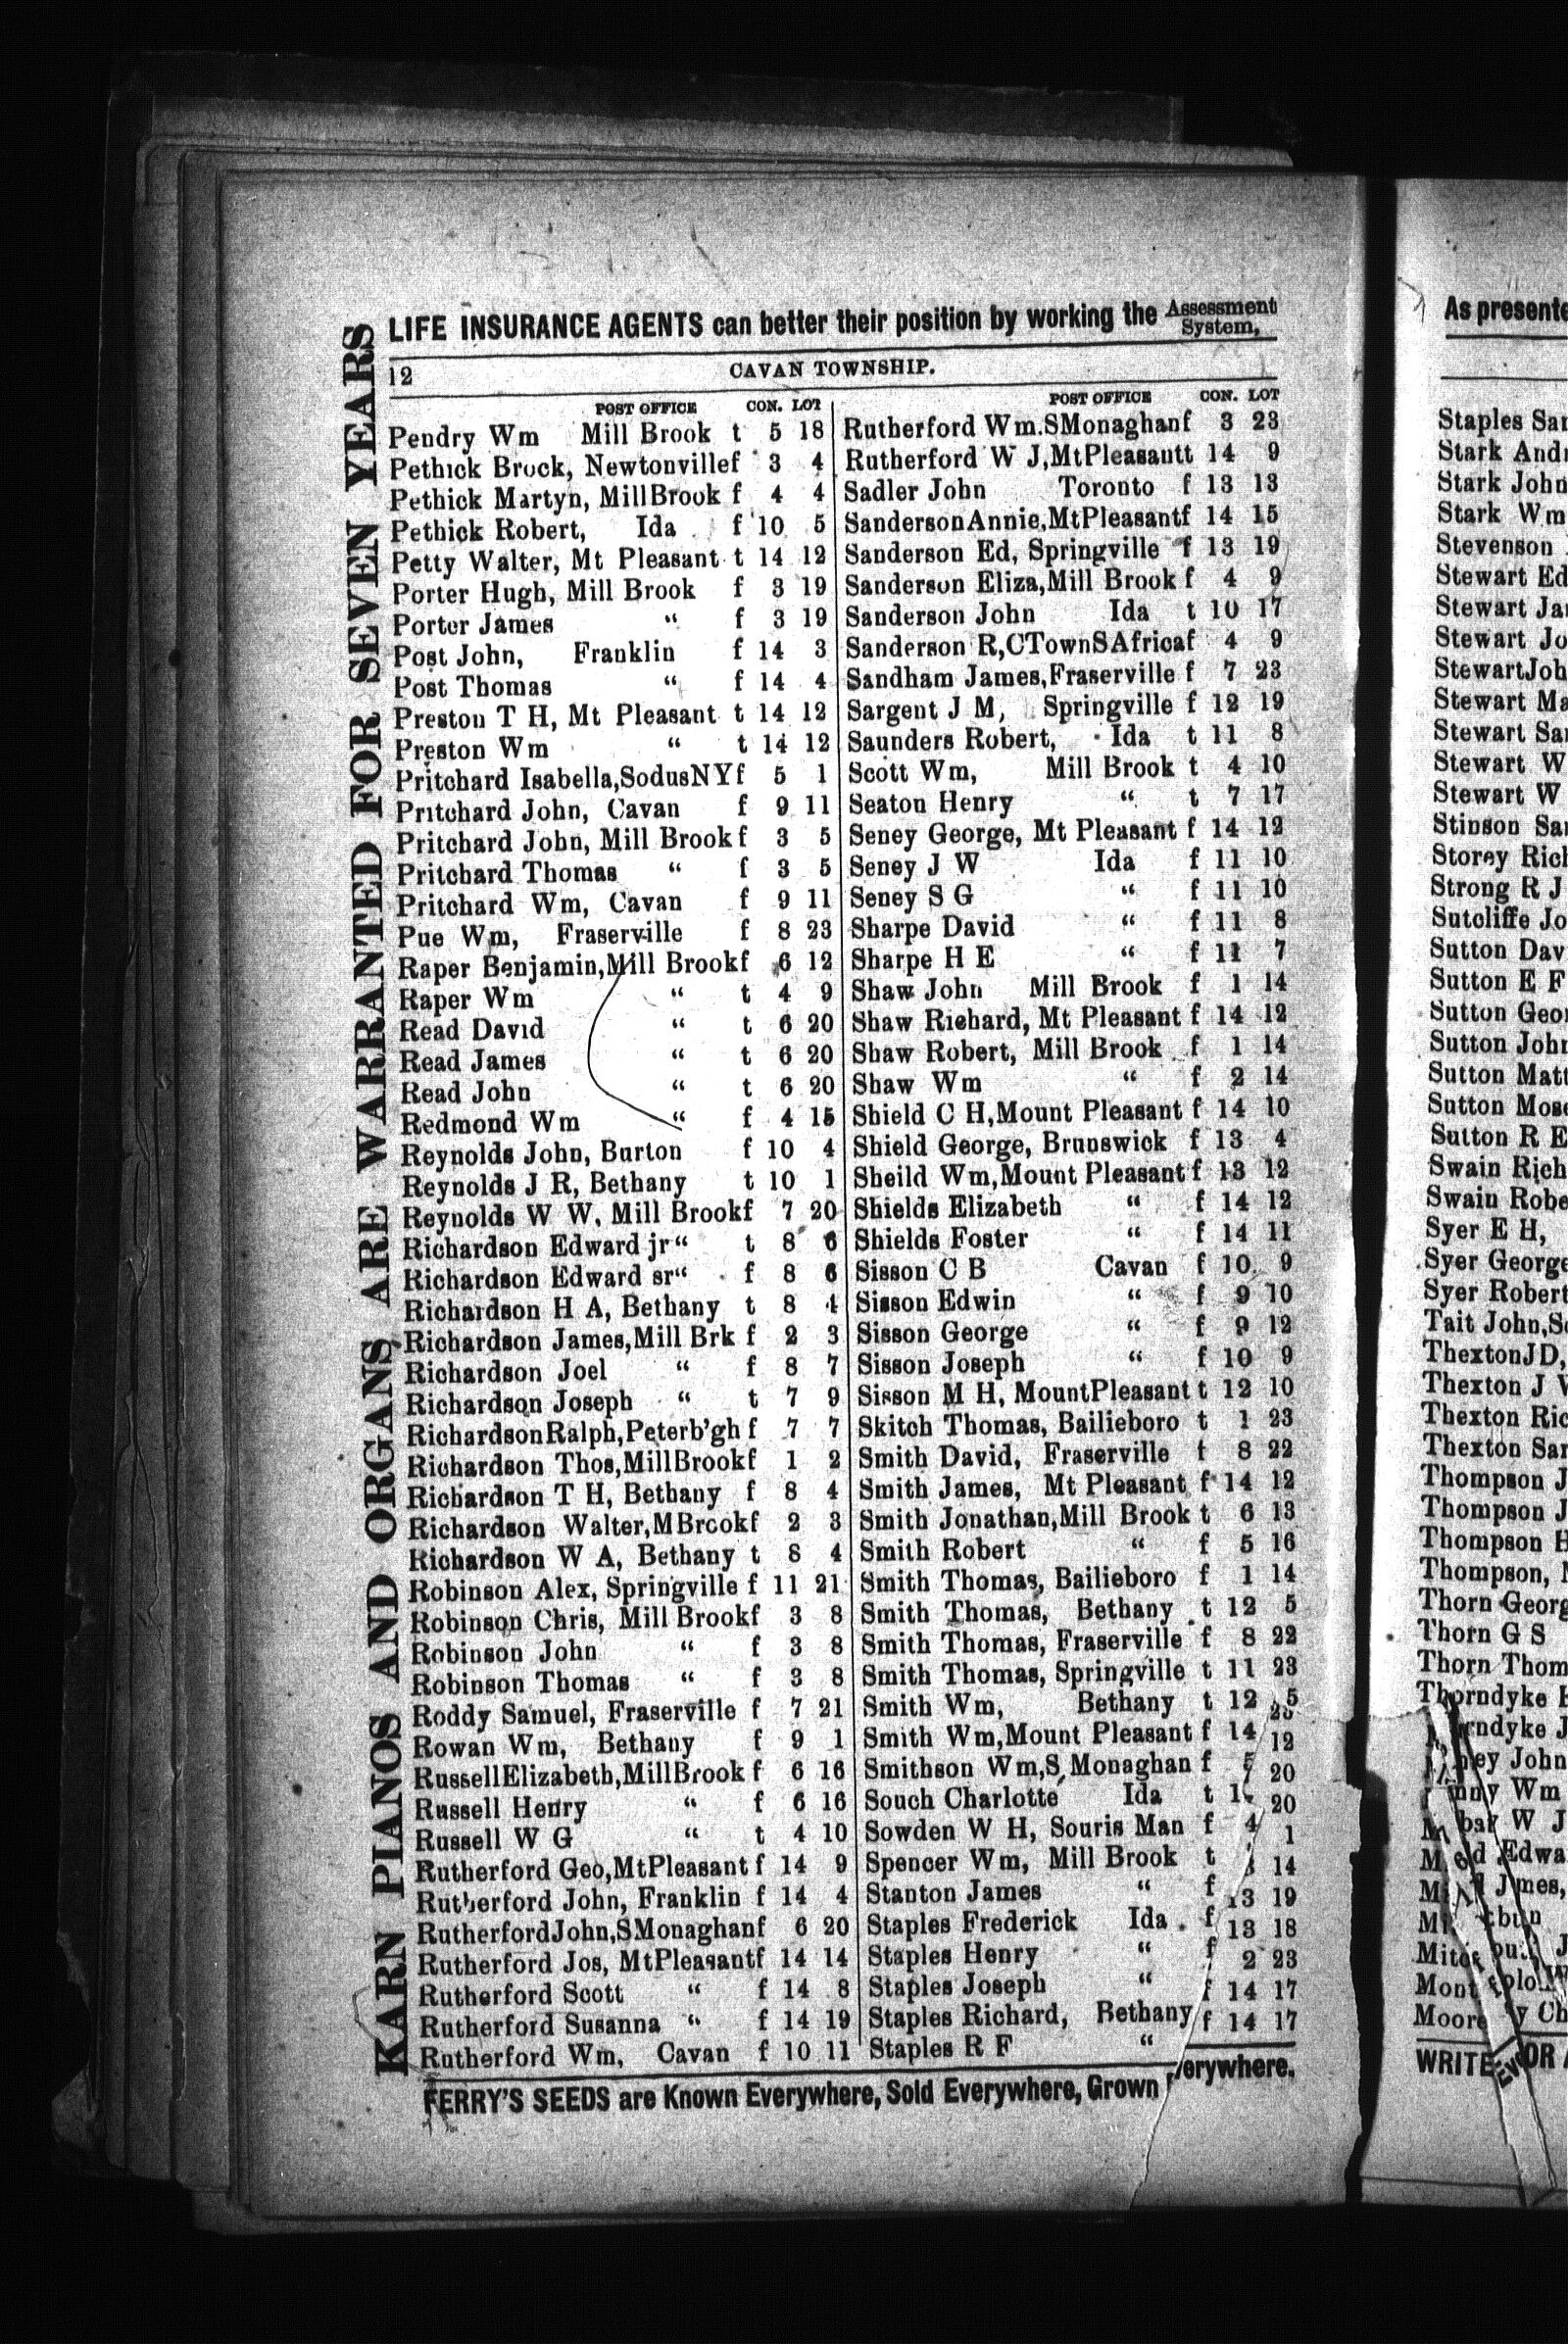 LIFE INSURANCE AGENTS can better their position by working the Assessment System,
12 CAVAN TOWNSHIP.
KARN PIANOS AND ORGANS ARE WARRANTED FOR SEVEN YEARS
POST OFFICE CON. LOT
Pendry Wm Mill Brook t 5 18
Pethick Brock, Newtonvillef 3 4
Pethick Martyn, MillBrook f 4 4
Pethick Robert, Ida f 10 5
Petty Walter, Mt Pleasant t 14 12
Porter Hugh, Mill Brook f 3 19
Porter James " f 3 19
Post John, Franklin f 14 3
Post Thomas " f 14 4
Preston T H, Mt Pleasant t 14 12
Preston Wm " t 14 12
Pritchard Isabella,SodusNYf 5 1
Pritchard John, Cavan f 9 11
Pritchard John, Mill Brook f 3 5
Pritchard Thomas " f 3 5
Pritchard Wm, Cavan f 9 11
Pue Wm, Fraserville f 8 23
Raper Benjamin,Mill Brookf 6 12
Raper Wm " t 4 9
Read David " t 6 20
Read James " t 6 20
Read John " t 6 20
Redmond Wm " f 4 15
Reynolds John, Burton f 10 4
Reynolds J R, Bethany t 10 1
Reynolds W W, Mill Brookf 7 20
Richardson Edward jr " t 8 6
Richardson Edward sr " f 8 6
Richardson H A, Bethany t 8 4
Richardson James,Mill Brk f 2 3
Richardson Joel " f 8 7
Richardson Joseph " t 7 9
RichardsonRalph,Peterb'gh f 7 7
Richardson Thos,MillBrookf 1 2
Richardson T H, Bethany f 8 4
Richardson Walter,MBrookf 2 3
Richardson W A, Bethany t 8 4
Robinson Alex, Springville f 11 21
Robinson Chris, Mill Brookf 3 8
Robinson John " f 3 8
Robinson Thomas " f 3 8
Roddy Samuel, Fraserville f 7 21
Rowan Wm, Bethany f 9 1
RussellElizabeth,MillBrook f 6 16
Russell Henry " f 6 16
Russell W G " t 4 10
Rutherford Geo,MtPleasant f 14 9
Rutherford John, Franklin f 14 4
RutherfordJohn,SMonaghanf 6 20
Rutherford Jos, MtPleasantf 14 14
Rutherford Scott " f 14 8
Rutherford Susanna " f 14 19
Rutherford Wm, Cavan f 10 11
POST OFFICE CON. LOT
Rutherford Wm.SMonaghanf 3 23
Rutherford W J,MtPleasantt 14 9
Sadler John Toronto f 13 13
SandersonAnnie,MtPleasantf 14 15
Sanderson Ed, Springville f 13 19
Sanderson Eliza,Mill Brook f 4 9
Sanderson John Ida t 10 17
Sanderson R,CTownSAfricaf 4 9
Sandham James,Fraserville f 7 23
Sargent J M, Springville f 12 19
Saunders Robert, Ida t 11 8
Scott Wm, Mill Brook t 4 10
Seaton Henry " t 7 17
Seney George, Mt Pleasant f 14 12
Seney J W Ida f 11 10
Seney S G " f 11 10
Sharpe David " f 11 8
Sharpe H E " f 11 7
Shaw John Mill Brook f 1 14
Shaw Richard, Mt Pleasant f 14 12
Shaw Robert, Mill Brook f 1 14
Shaw Wm " f 2 14
Shield C H,Mount Pleasant f 14 10
Shield George, Brunswick f 13 4
Sheild Wm,Mount Pleasant f 13 12
Shields Elizabeth " f 14 12
Shields Foster " f 14 11
Sisson C B Cavan f 10 9
Sisson Edwin " f 9 10
Sisson George " f 9 12
Sisson Joseph " f 10 9
Sisson M H, MountPleasant t 12 10
Skitch Thomas, Bailieboro t 1 23
Smith David, Fraserville t 8 22
Smith James, Mt Pleasant f 14 12
Smith Jonathan,Mill Brook t 6 13
Smith Robert " f 5 16
Smith Thomas, Bailieboro f 1 14
Smith Thomas, Bethany t 12 5
Smith Thomas, Fraserville f 8 22
Smith Thomas, Springville t 11 23
Smith Wm, Bethany t 12 5
Smith Wm,Mount Pleasant f 14 12
Smithson Wm,S Monaghan f 20
Souch Charlotte Ida t 20
Sowden W H, Souris Man f 4 1
Spencer Wm, Mill Brook t 14
Stanton James " f 13 19
Staples Frederick Ida f 13 18
Staples Henry " f 2 23
Staples Joseph " f 14 17
Staples Richard, Bethany f 14 17
Staples R F "
FERRY'S SEEDS are Known Everywhere, Sold Everywhere, Grown erywhere.
As presente
Staples Sa
Stark And
Stark John
Stark Wm
Stevenson
Stewart Ed
Stewart Ja
Stewart Jo
StewartJoh
Stewart Ma
Stewart Sa
Stewart W
Stewart W
Stinson Sa
Storey Ric
Strong R J
Sutcliffe Jo
Sutton Dav
Sutton E F
Sutton Geo
Sutton John
Sutton Matt
Sutton Mos
Sutton R E
Swain Rich
Swain Robe
Syer E H,
Syer George
Syer Robert
Tait John,S
ThextonJD,
Thexton J
Thexton Ric
Thexton Sa
Thompson J
Thompson J
Thompson
Thompson,
Thorn Georg
Thorn G S
Thorn Thom
Thorndyke
rndyke J
ey John
Wm
W J
Edwa
Moore
WRITE